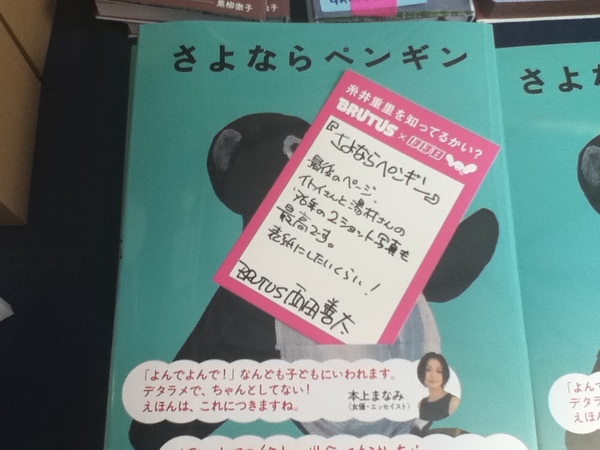 黒柳徹子
さよならペンギン
さよな
糸井重里を知ってるかい？
BRUTUS×ほぼ日
『さよならペンギン』
最後のページ、
イトイさんと湯村さんの
2ショット写真も
最高です。
表紙にしたいくらい！
BRUTUS 西田善太
「よんでよんで！」なんども子どもにいわれます。
デタラメで、ちゃんとしてない！
えほんは、これにつきますね。
本上まなみ
（女優・エッセイスト）
「よんで
デタラ
えほん